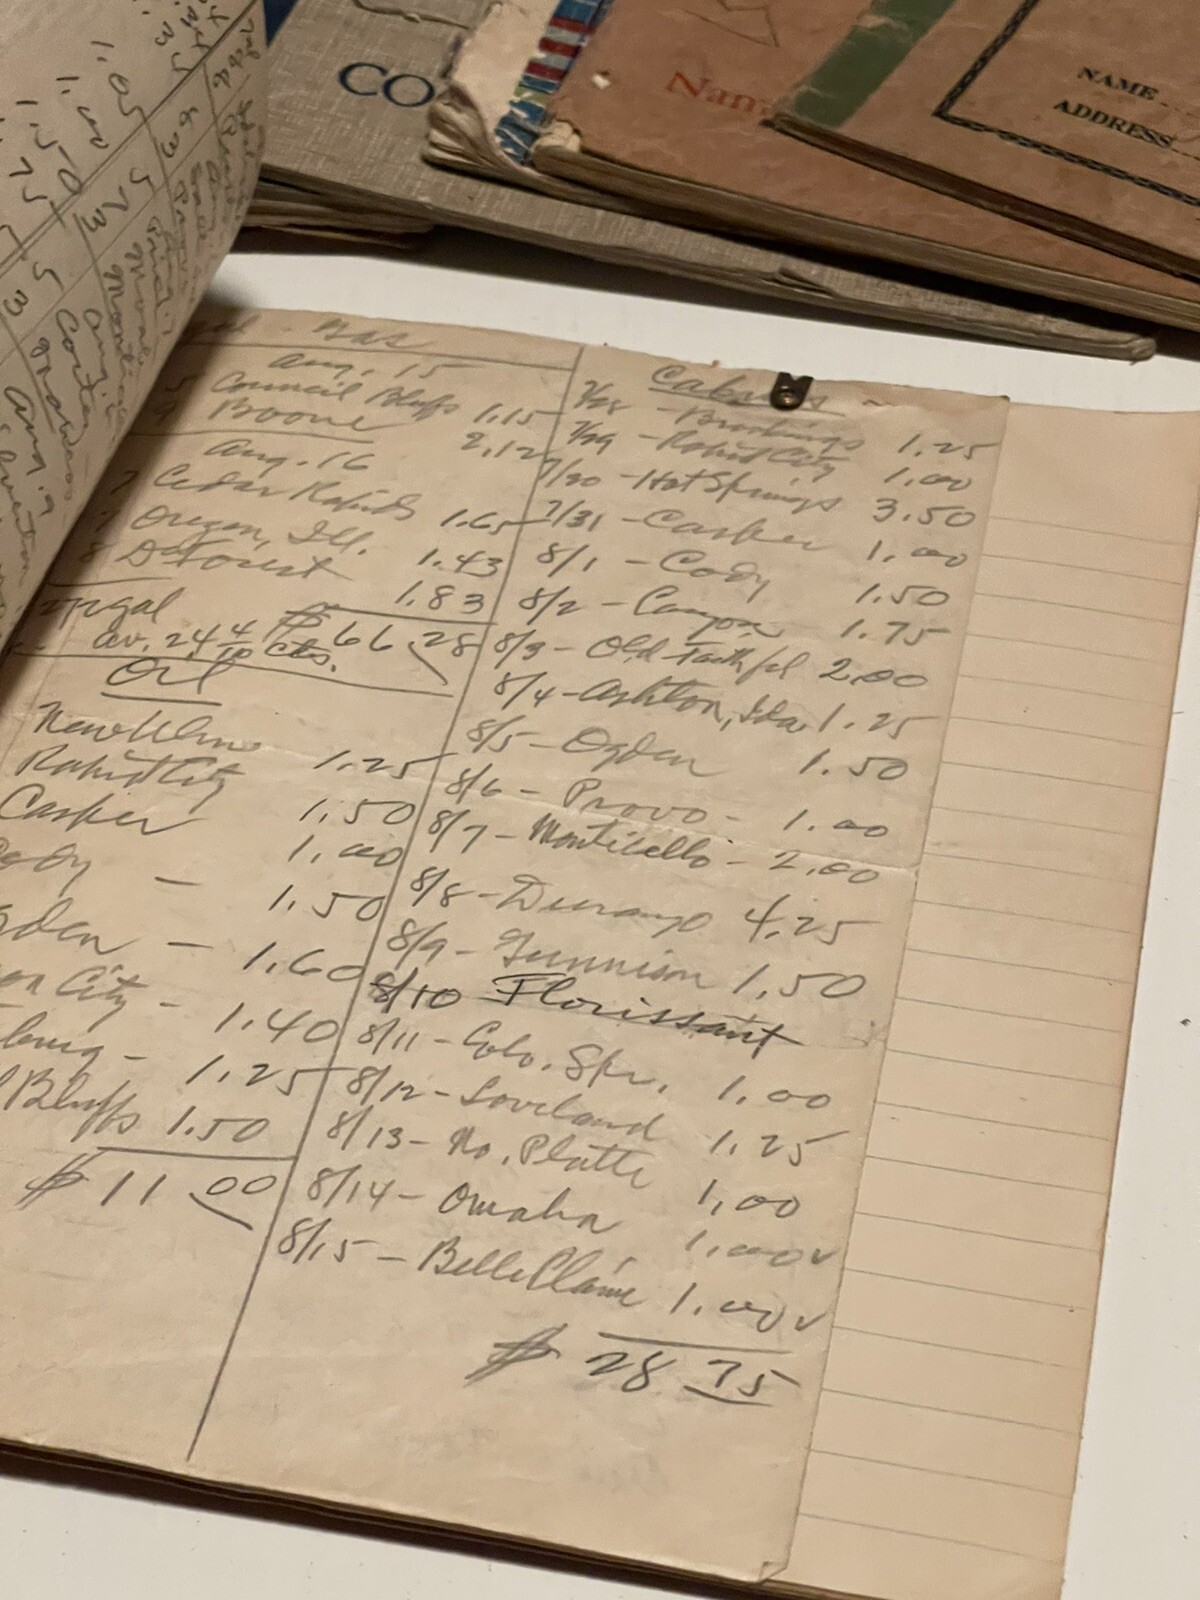 CO
Nam
NAME
ADDRESS
1.05
1.00
1.50
.75
Gas
Aug. 15
5 Council Bluffs 1.15
9 Boone 2.12
Aug. 16
7 Cedar Rapids 1.65
7 Oregon, Ill. 1.43
8 DeForest 1.83
gal $66.28
av. 24 4/10 cts.
Oil
New Ulm 1.25
Rapid City 1.50
Casper 1.00
ody — 1.50
gden — 1.60
on City - 1.40
burg - 1.25
l Bluffs 1.50
$ 11 00
Cabins
7/28 - Brookings 1.25
7/29 - Rapid City 1.00
7/30 - Hot Springs 3.50
7/31 - Casper 1.00
8/1 - Cody 1.50
8/2 - Canyon 1.75
8/3 - Old Faithful 2.00
8/4 - Ashton, Ida 1.25
8/5 - Ogden 1.50
8/6 - Provo - 1.00
8/7 - Monticello - 2.00
8/8 - Durango 4.25
8/9 - Gunnison 1.50
8/10 Florissant
8/11 - Colo. Spr. 1.00
8/12 - Loveland 1.25
8/13 - No. Platte 1.00
8/14 - Omaha 1.00 ✓
8/15 - Belle Plaine 1.00 ✓
$ 28 75